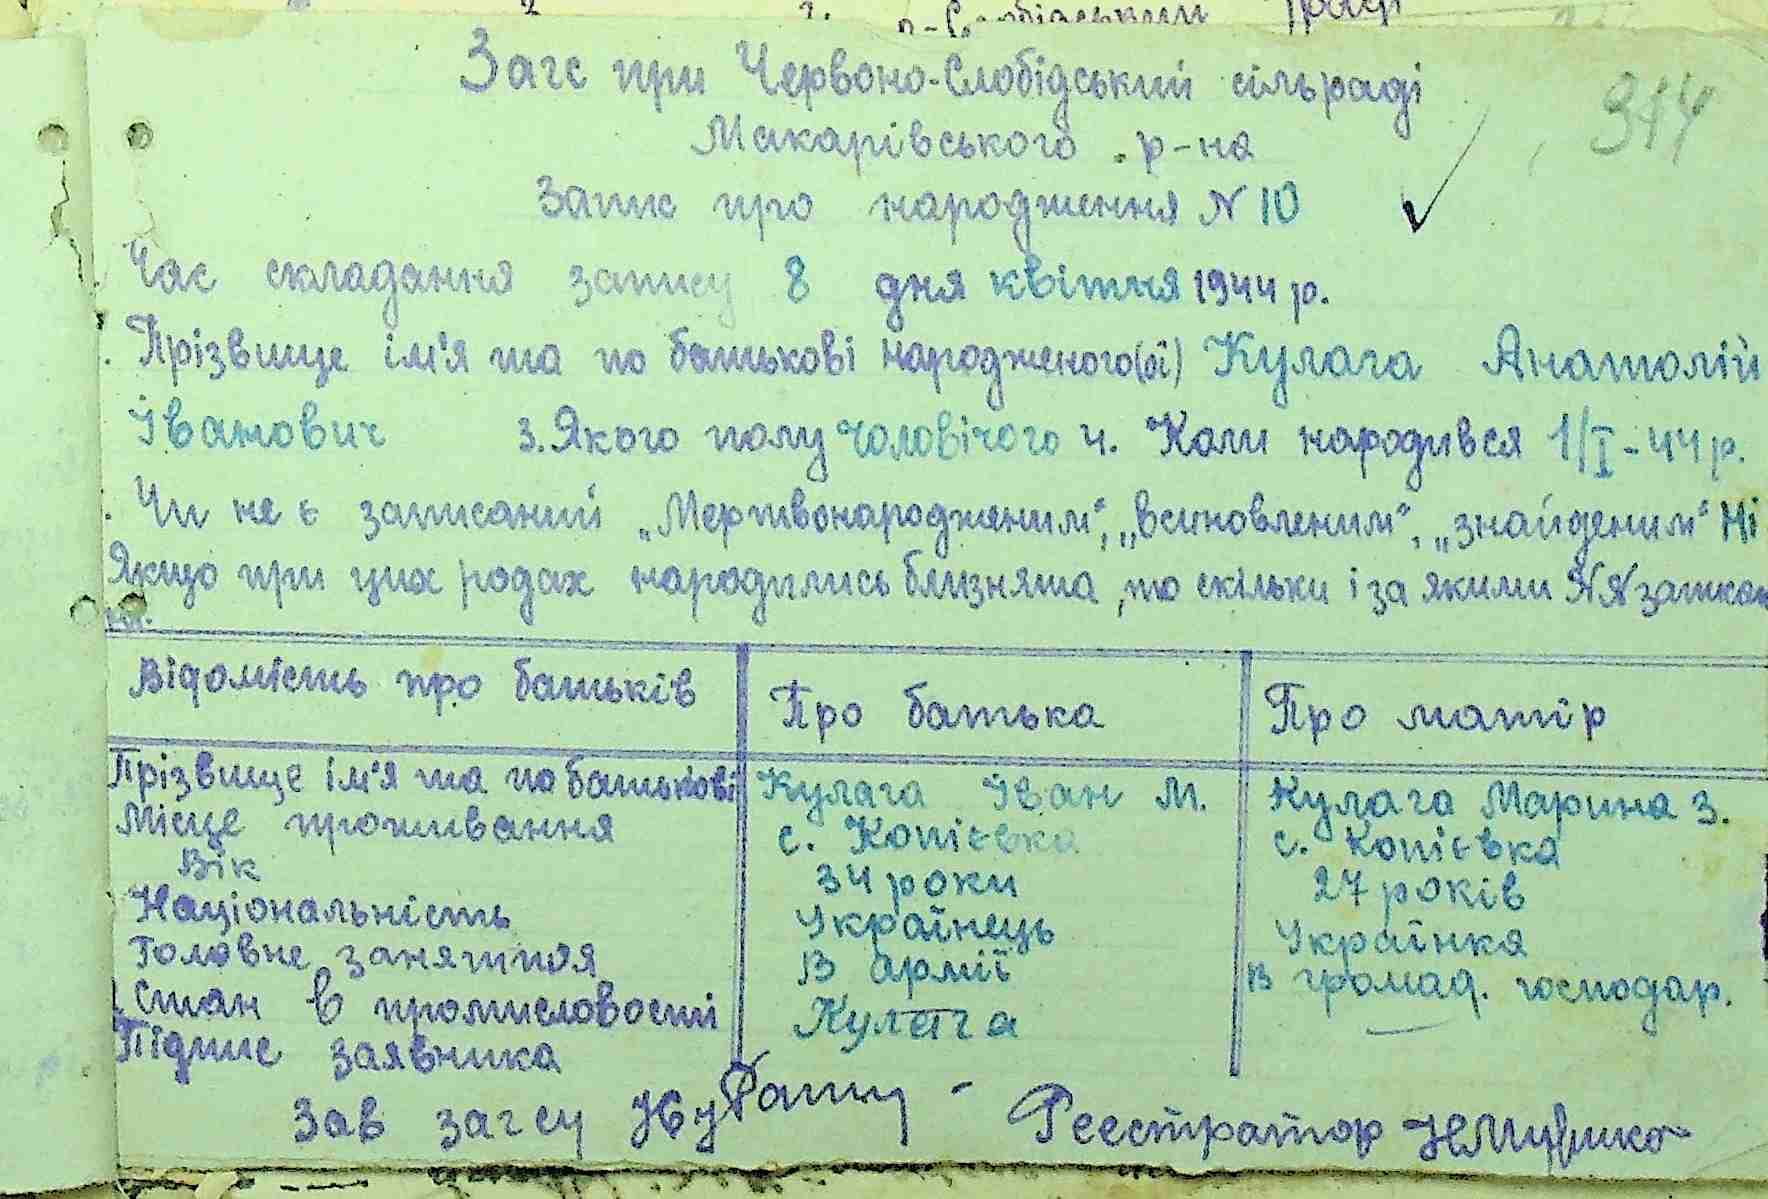 Загс при Червоно-Слобідський сільраді
344
Макарівського р-на
Запис про народження N 10
Час складання запису 8 дня квітня 1944 р.
Прізвище ім'я та по батькові народженого(ої) Кулага Анатолій
Іванович 3. Якого полу чоловічого 4. Коли народився 1/I-44 р.
Чи не є записаний „Мертвонародженим", „всиновленим", „знайденим" Ні
Якщо при цих родах народились близнята, то скільки і за якими NN
Відомість про батьків Про батька Про матір
Прізвище ім'я та по батькові Кулага Іван М. Кулага Марина З.
Місце проживання с. Копієвка с. Копієвка
Вік 34 роки 27 років
Національність Українець Українка
Головне заняття В армії В громад. господар.
Стан в промисловості
Підпис заявника Кулага
Зав загсу Реєстратор